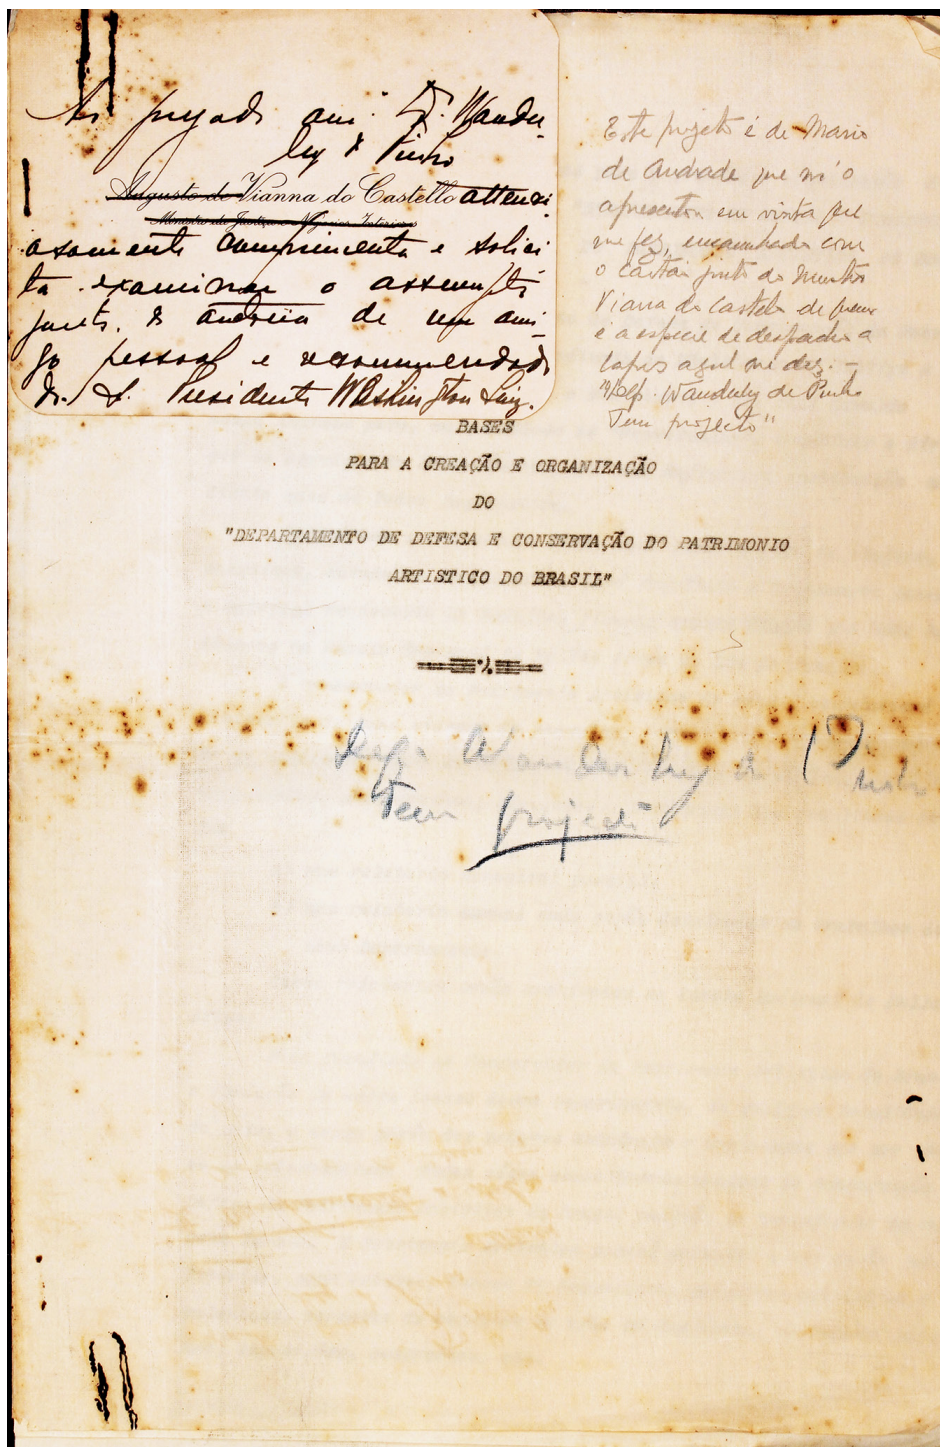 Ao prezado ami. Dr. Wander
ley de Pinho
Augusto de Vianna do Castello attenci
Ministro da Justiça e Negocios Interiores
osamente comprimenta e solici
ta examinar o assumpto
junto. de um ami
go pessoal e recommendado
do S. Presidente Washington Luiz.
Este projeto é de Mario
de Andrade que m'o
apresentou em visita que
me fez, encaminhado com
o cartão junto do Ministro
Viana do Castelo de quem
é a especie de despacho a
lapis azul que diz: —
Wanderley de Pinho
Tem projecto"
BASES
PARA A CREAÇÃO E ORGANIZAÇÃO
DO
"DEPARTAMENTO DE DEFESA E CONSERVAÇÃO DO PATRIMONIO
ARTISTICO DO BRASIL"
Wanderley de Pinho
Tem projecto